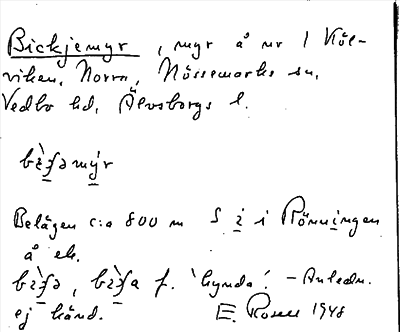 Bickjemyr, myr å nr 1 Köl-
viken, Norra, Nössemarks sn,
Vedbo hd, Älvsborgs l.
Belägen c:a 800 m S i i Rönningen
å ek.
f. 'hynda'. – Anledn.
ej känd. E. Rosell 1948